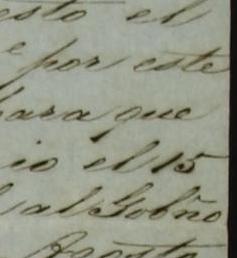 esto el
e por este
para que
io el 15
al Gobño
Agosto